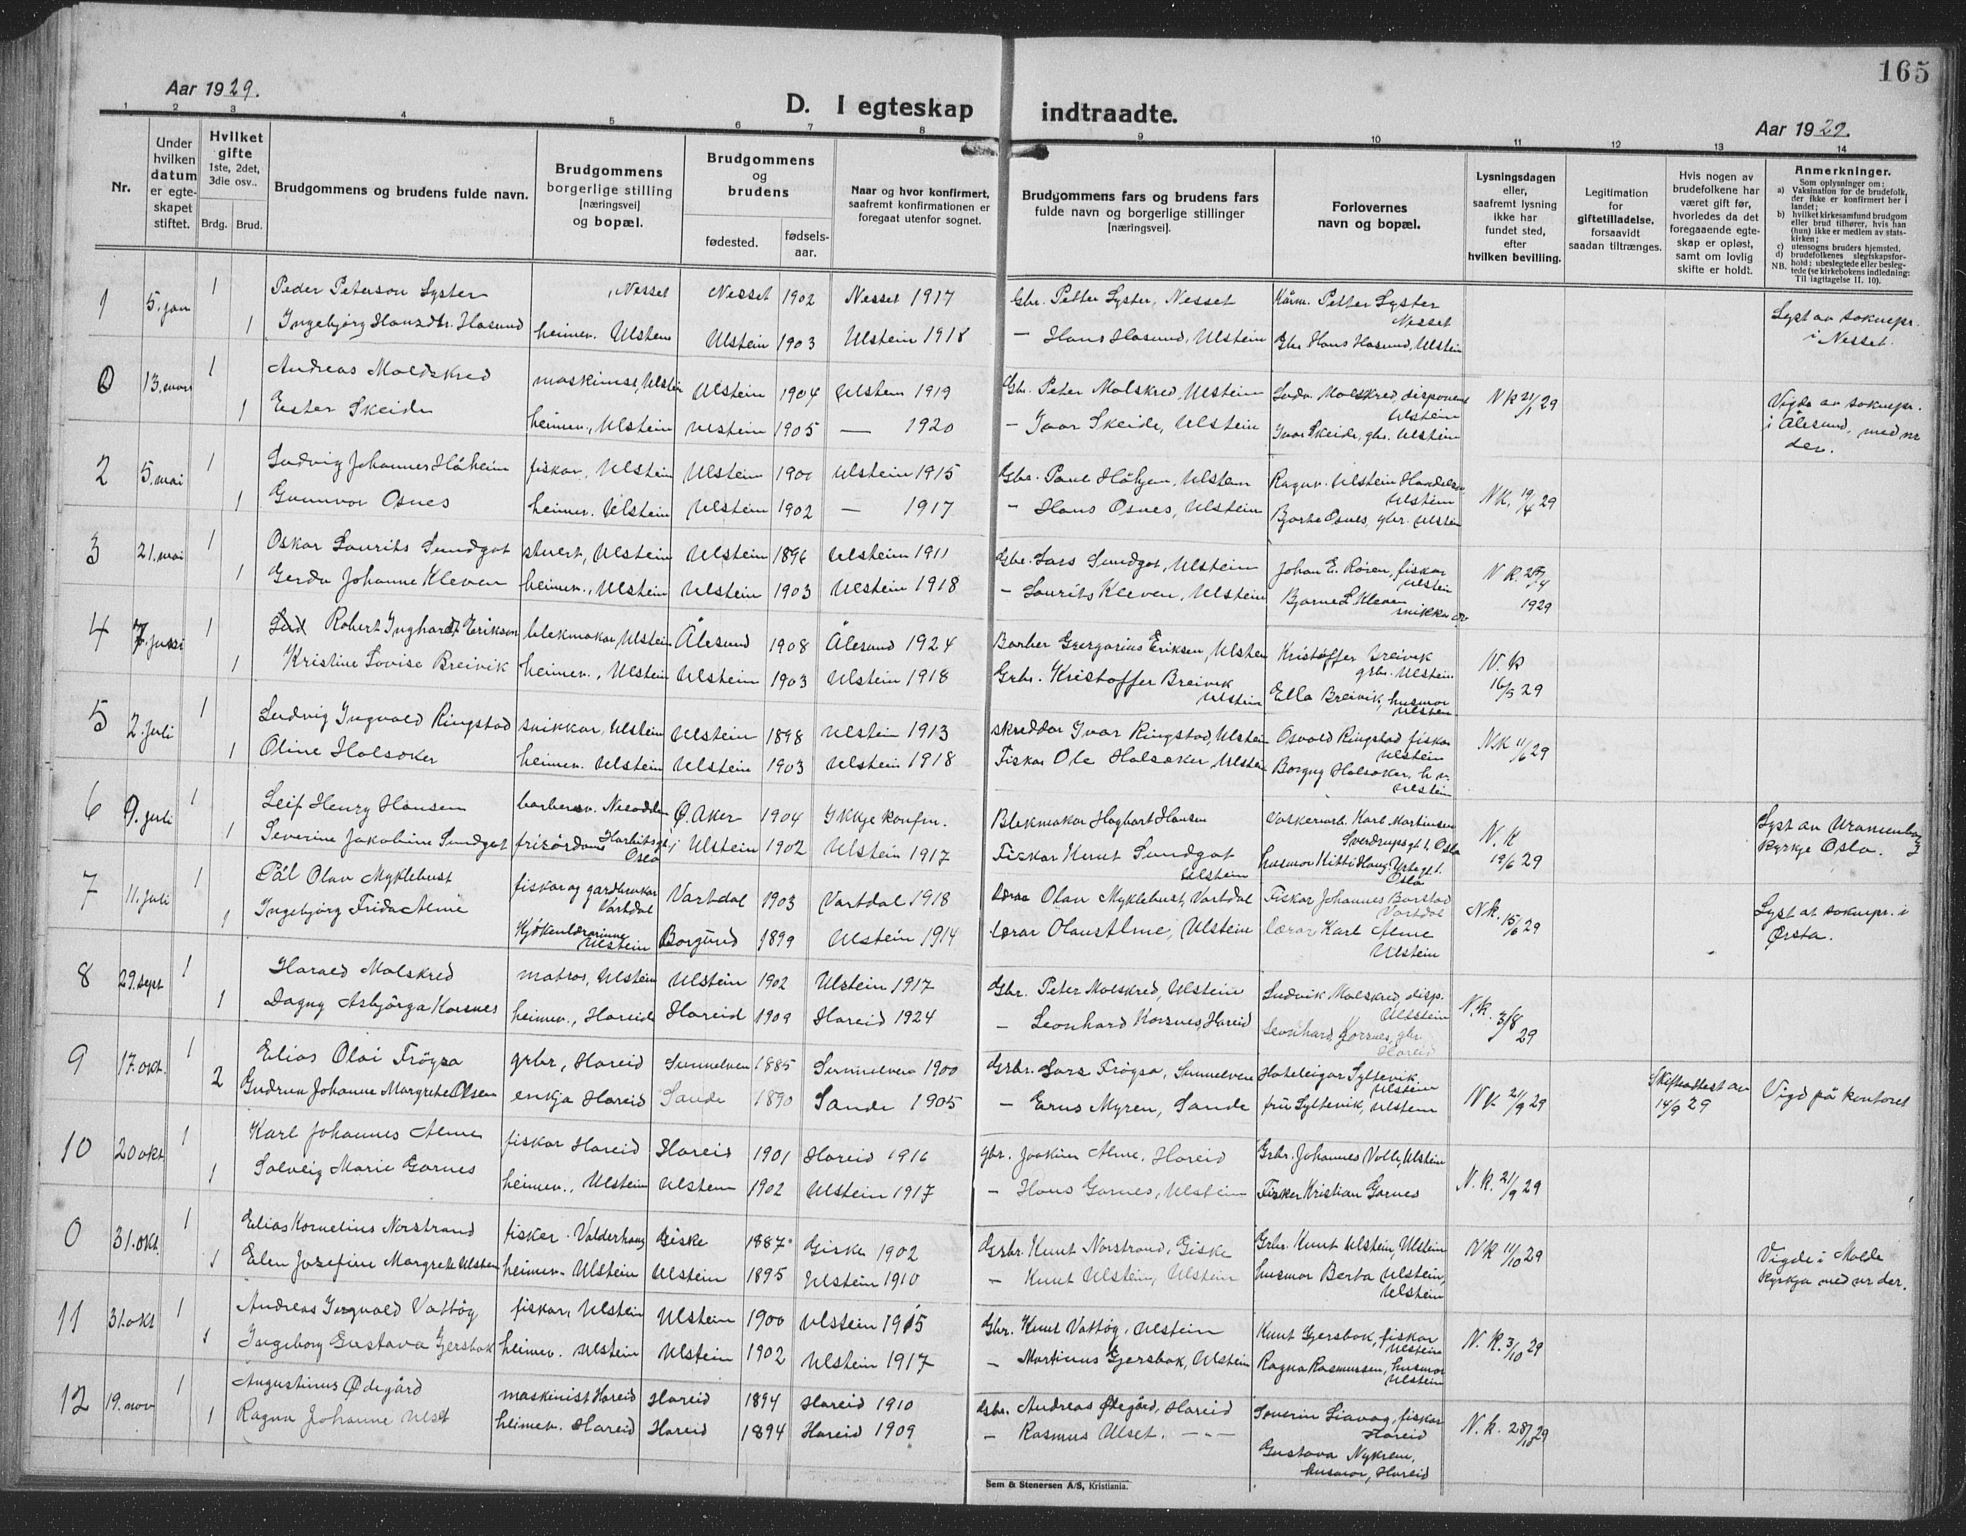 165
Aar 1929.
D. I egteskap indtraadte.
Aar 1929.
1 2 3 4 5 6 7 8 9 10 11 12 13 14
Nr.
Under hvilken datum er egte-skapet stiftet.
Hvilket gifte 1ste, 2det, 3die osv..
Brdg. Brud.
Brudgommens og brudens fulde navn.
Brudgommens borgerlige stilling [næringsvei] og bopæl.
Brudgommens og brudens
fødested. fødsels-aar.
Naar og hvor konfirmert, saafremt konfirmationen er foregaat utenfor sognet.
Brudgommens fars og brudens fars fulde navn og borgerlige stillinger [næringsvei].
Forlovernes navn og bopæl.
Lysningsdagen eller, saafremt lysning ikke har fundet sted, efter hvilken bevilling.
Legitimation for giftetilladelse, forsaavidt saadan tiltrænges.
Hvis nogen av brudefolkene har været gift før, hvorledes da det foregaaende egte-skap er opløst, samt om lovlig skifte er holdt.
Anmerkninger.
Som oplysninger om:
a) Vaksination for de brudefolk, der ikke er konfirmert her i landet;
b) hvilket kirkesamfund brudgom eller brud tilhører, hvis han (hun) ikke er medlem av stats-kirken;
c) utensogns bruders hjemsted.
d) brudefolkenes slegtskapsfor-hold; ubeslegtede eller besleg-tede (se kirkebokens indledning:
NB. Til iagttagelse II. 10).
1 5. jan 1 Peder Peterson Syster Nesset Nesset 1902 Nesset 1917 Gbr. Petter Syster, Nesset Kårm. Petter Syster Nesset Lyst av soknepr. i Nesset.
1 Ingebjørg Hansdtr. Hasund heimev. Ulstein Ulstein 1903 Ulstein 1918 — Hans Hasund, Ulstein Gbr Hans Hasund, Ulstein
0 13. mars 1 Andreas Moldskred maskinist, Ulstein Ulstein 1904 Ulstein 1919 Gbr. Peter Molskred, Ulstein Ludv. Molskred, disponent Ulstein N K 21/1 29 Vigde av soknepr. i Ålesund, med nr der.
1 Ester Skeide heimev., Ulstein Ulstein 1905 — 1920 — Ivar Skeide, Ulstein Ivar Skeide, gbr. Ulstein
2 5. mai 1 Ludvig Johannes Håheim fiskar, Ulstein Ulstein 1900 Ulstein 1915 Gbr. Paul Håhjem, Ulstein Ragnv. Ulstein Handelsm. Ulstein N K. 19/4 29
1 Gunnvor Osnes heimev. Ulstein Ulstein 1902 — 1917 — Hans Osnes, Ulstein Bjarte Osnes, gbr. Ulstein
3 21. mai 1 Oskar Laurits Sundgot stuert, Ulstein Ulstein 1896 Ulstein 1911 Gbr. Lars Sundgot, Ulstein Johan E. Røren, fiskar Ulstein N K. /4 1929
1 Gerda Johanne Kleven heimev., Ulstein Ulstein 1903 Ulstein 1918 — Laurits Kleven, Ulstein Bjarne L Kleven snikkar
4 7. juni 1 Robert Inghardt Erikson blekmakar, Ulstein Ålesund 1908 Ålesund 1924 Barber Gregorius Eriksen, Ulstein Kristoffer Breivik grbr. Ulstein N. K 16/5 29
1 Kristine Lovise Breivik heimev., Ulstein Ulstein 1903 Ulstein 1918 Grbr. Kristoffer Breivik Ulstein Ella Breivik, husmor Ulstein
5 2. juli 1 Ludvig Ingvald Ringstad snikkar, Ulstein Ulstein 1898 Ulstein 1913 skreddar Ivar Ringstad, Ulstein Osvald Ringstad fiskar Ulstein N.K 11/6 29
1 Oline Halsøker heimev. Ulstein Ulstein 1903 Ulstein 1918 Fiskar Ole Halsøker Ulstein Borgny Halsøker. h.v. Ulstein
6 9. juli 1 Leif Henry Hansen barbersv. Nesodden Ø. Aker 1904 Ikkje konfm. Blekmakar Hagbart Hansen Karl Martinsen Sverdrupsgt 1, Oslo N. K 19/6 29 Lyst av Uranienborg kyrkje Oslo.
1 Severine Jakobine Sundgot frisørdame Oslo Ulstein 1902 Ulstein 1917 Fiskar Knut Sundgot Ulstein husmor Kitti Haug, Oslo
7 11. juli 1 Pål Olav Myklebust fiskar og gardbrukar Vartdal Vartdal 1903 Vartdal 1918 Lærar Olav Myklebust, Vartdal Fiskar Johannes Barstad Vartdal N.k. 15/6 29 Lyst at soknepr. i Ørsta.
1 Ingebjørg Frida Alme Kjøkenlærarinne Ulstein Borgund 1899 Ulstein 1914 lærar Olaus Alme, Ulstein lærar Karl Alme Ulstein
8 29. sept 1 Harald Molskred matros, Ulstein Ulstein 1902 Ulstein 1917 Gbr. Peter Molskred, Ulstein Ludvik Molskred, disp. Ulstein N.k. 3/8 29
1 Dagny Asbjørga Korsnes heimev., Hareid Hareid 1909 Hareid 1924 — Leonhard Korsnes, Hareid Leonhard Korsnes, gbr Hareid
9 17. okt. 1 Elias Olai Frøysa grbr, Hareid Sunnelven 1885 Sunnelven 1900 Grbr. Lars Frøysa, Sunnelven Hoteleigar Syltevik, Ulstein N K 21/9 29 Skifteattest av 14/9 29 Vigd på kontoret
2 Gudrun Johanne Margrete Olsen enkja Hareid Sande 1890 Sande 1905 — Erns Myren, Sande fru Syltevik, Ulstein
10 20 okt 1 Karl Johannes Alme fiskar Hareid Hareid 1901 Hareid 1916 gbr. Joakim Alme, Hareid Grbr. Johannes Volle, Ulstein N. K. 21/9 29
1 Solveig Marie Garnes heimev., Ulstein Ulstein 1902 Ulstein 1917 — Hans Garnes, Ulstein Fisker Kristian Garnes
0 31. okt. 1 Elias Kornelius Norstrand fisker. Valderhaug Giske 1887 Giske 1902 Grbr. Knut Norstrand, Giske Grbr. Knut Ulstein, Ulstein N K 11/10 29 Vigde i Molde kyrkja med nr der.
1 Elen Josefine Margrete Ulstein heimev. Ulstein Ulstein 1895 Ulstein 1910 — Knut Ulstein, Ulstein husmor Berta Ulstein, Ulstein
11 31. okt 1 Andreas Ingvald Vattøy fiskar, Ulstein Ulstein 1900 Ulstein 1915 Gbr. Knut Vattøy, Ulstein Knut Gjersbak, fiskar Ulstein N. K. 3/10 29
1 Ingeborg Gustava Gjersbak heimev. Ulstein Ulstein 1902 Ulstein 1917 — Martinus Gjersbak, Ulstein Ragna Rasmussen, husmor Ulstein
12 19. nov 1 Augustinus Ødegård maskinist Hareid Hareid 1894 Hareid 1910 Gbr. Andreas Ødegård, Hareid Severin Liavåg, fiskar Hareid N. K. 28/10 29
1 Ragna Johanne Ulset heimev. Hareid Hareid 1894 Hareid 1909 — Rasmus Ulset. — „ — Gustava Nykrem, husmor, Hareid
Sem & Stenersen A/S, Kristiania.